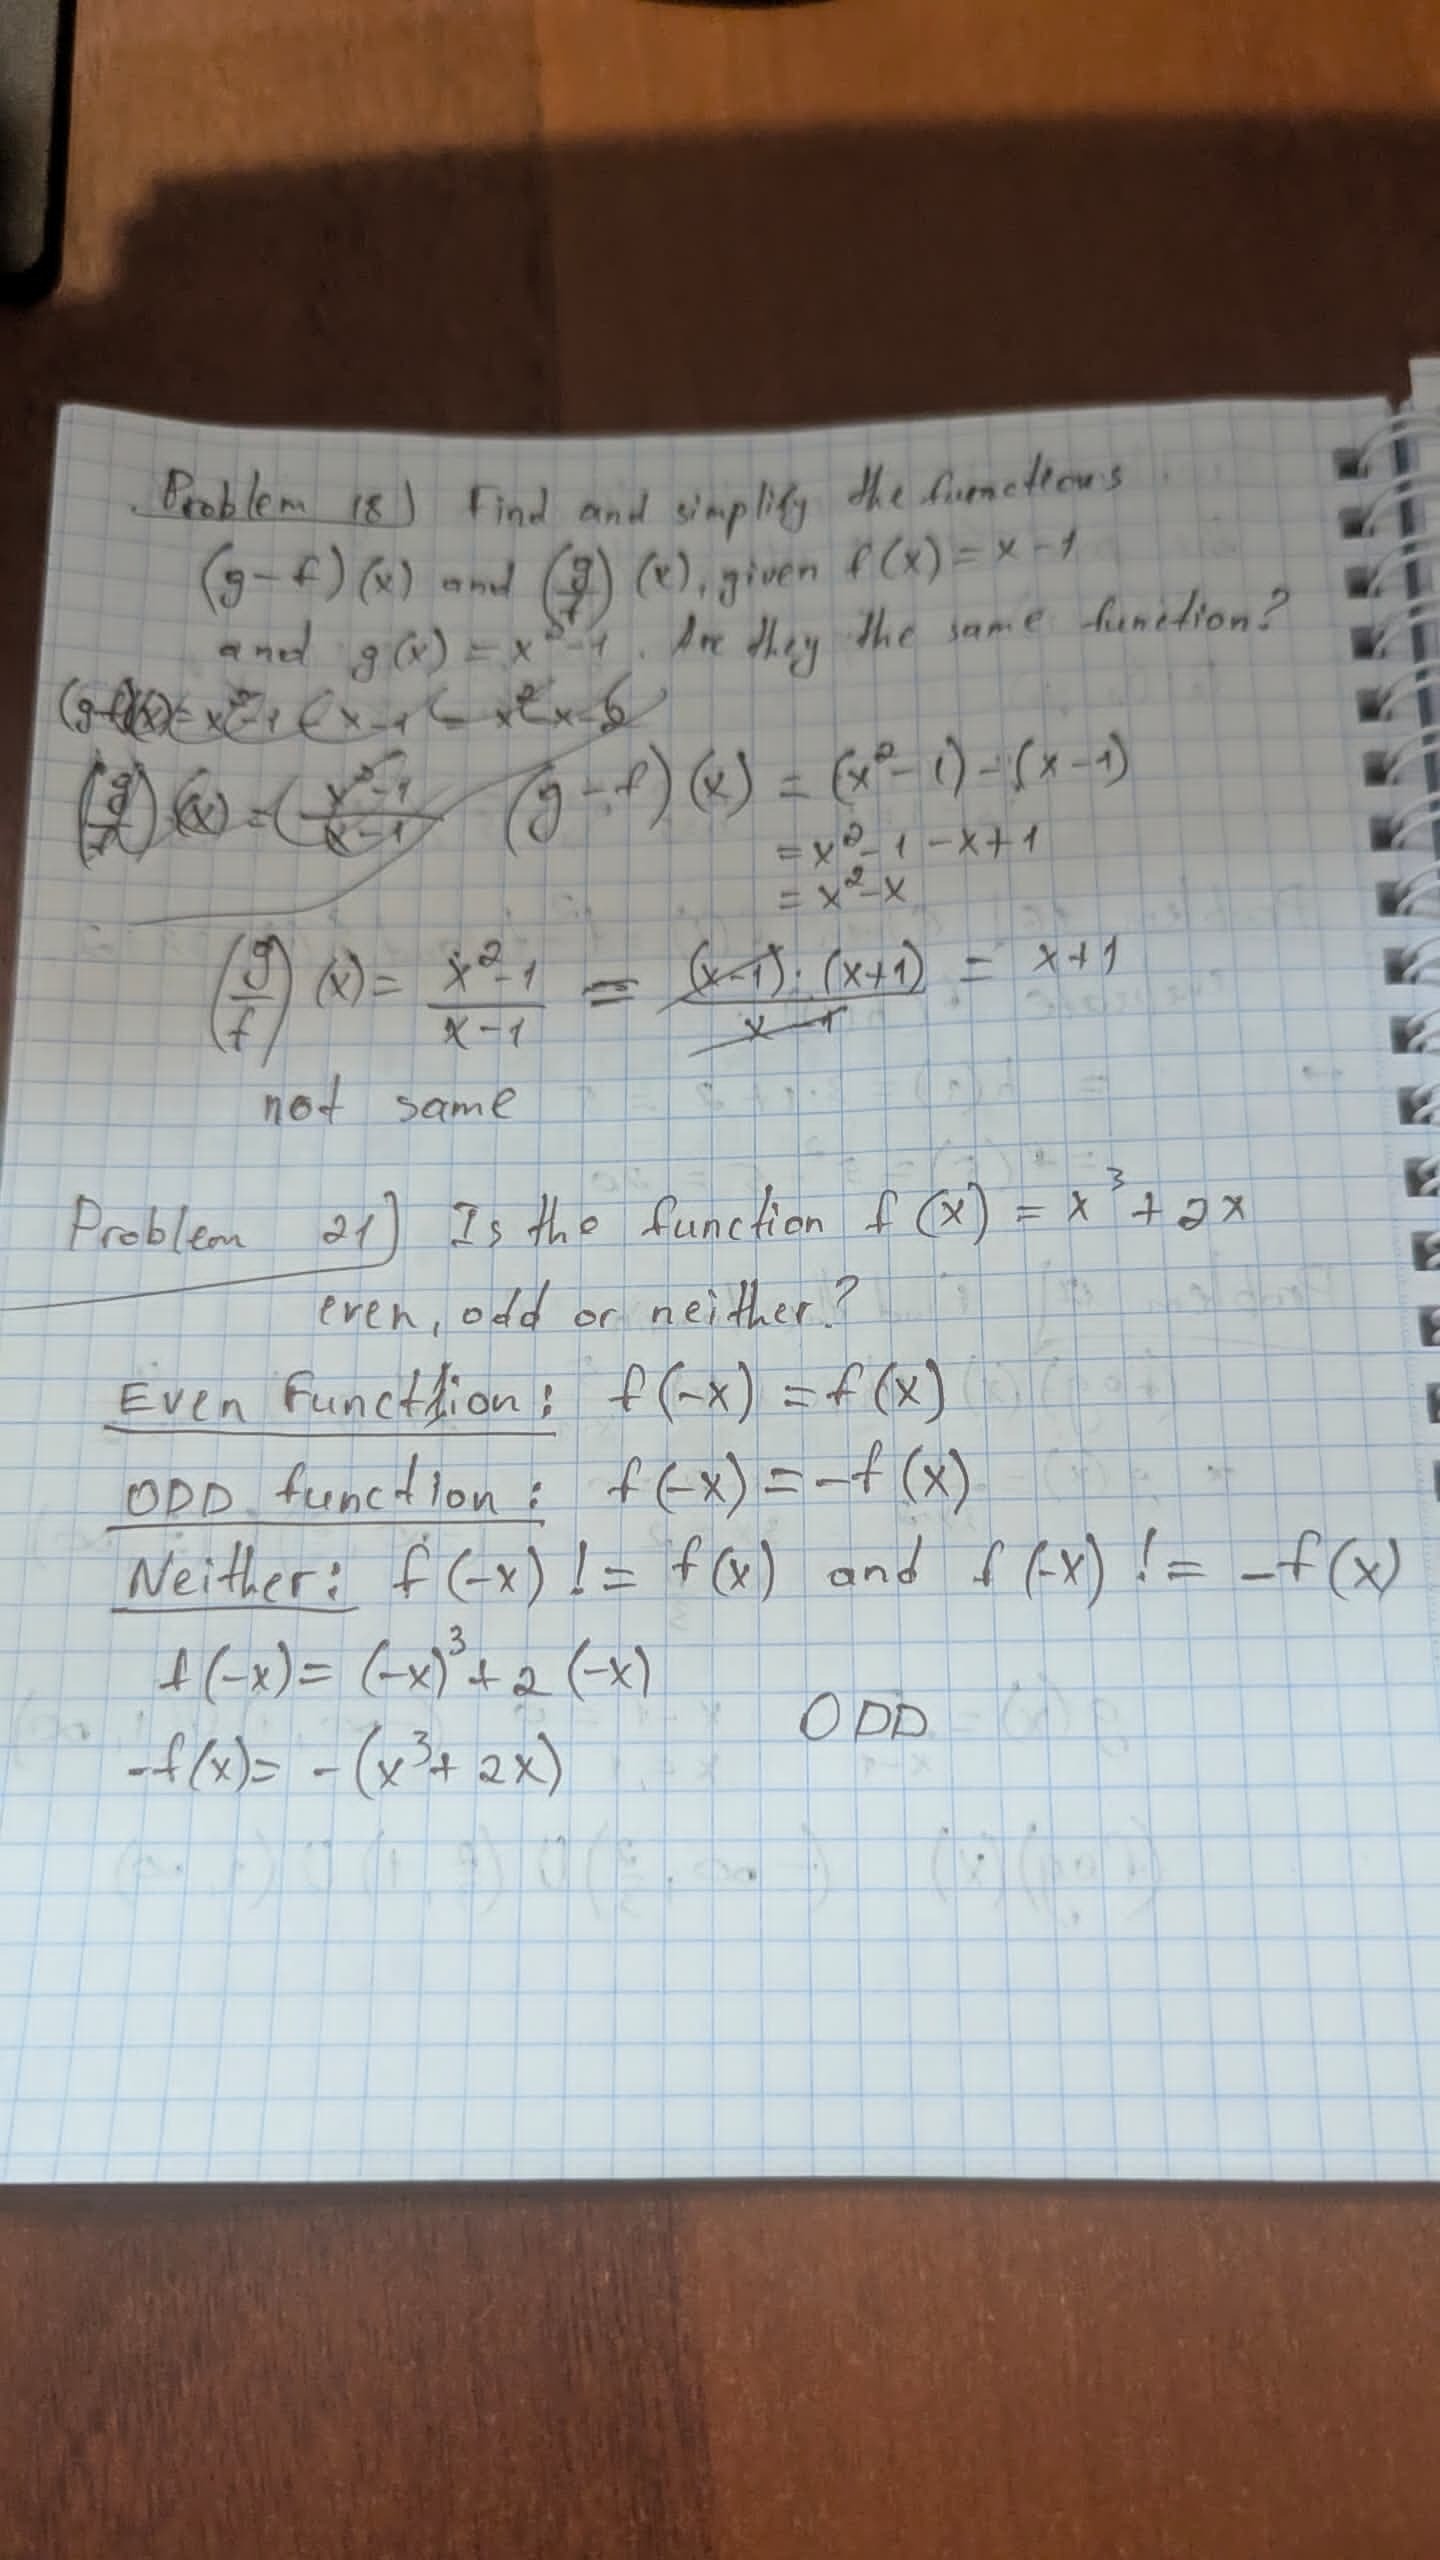 Problem 18) Find and simplify the functions
(g-f)(x) and (g/f)(x), given f(x) = x-1
and g(x) = x²-1. Are they the same function?
(g-f)(x) = (x²-1)-(x-1)
= x²-1-x+1
= x²-x
(g/f)(x) = (x²-1)/(x-1) = (x-1)·(x+1)/(x-1) = x+1
not same
Problem 21) Is the function f(x) = x³+2x
even, odd or neither?
Even Function: f(-x) = f(x)
ODD function: f(-x) = -f(x)
Neither: f(-x) != f(x) and f(-x) != -f(x)
f(-x) = (-x)³+2(-x)
ODD
-f(x) = -(x³+2x)